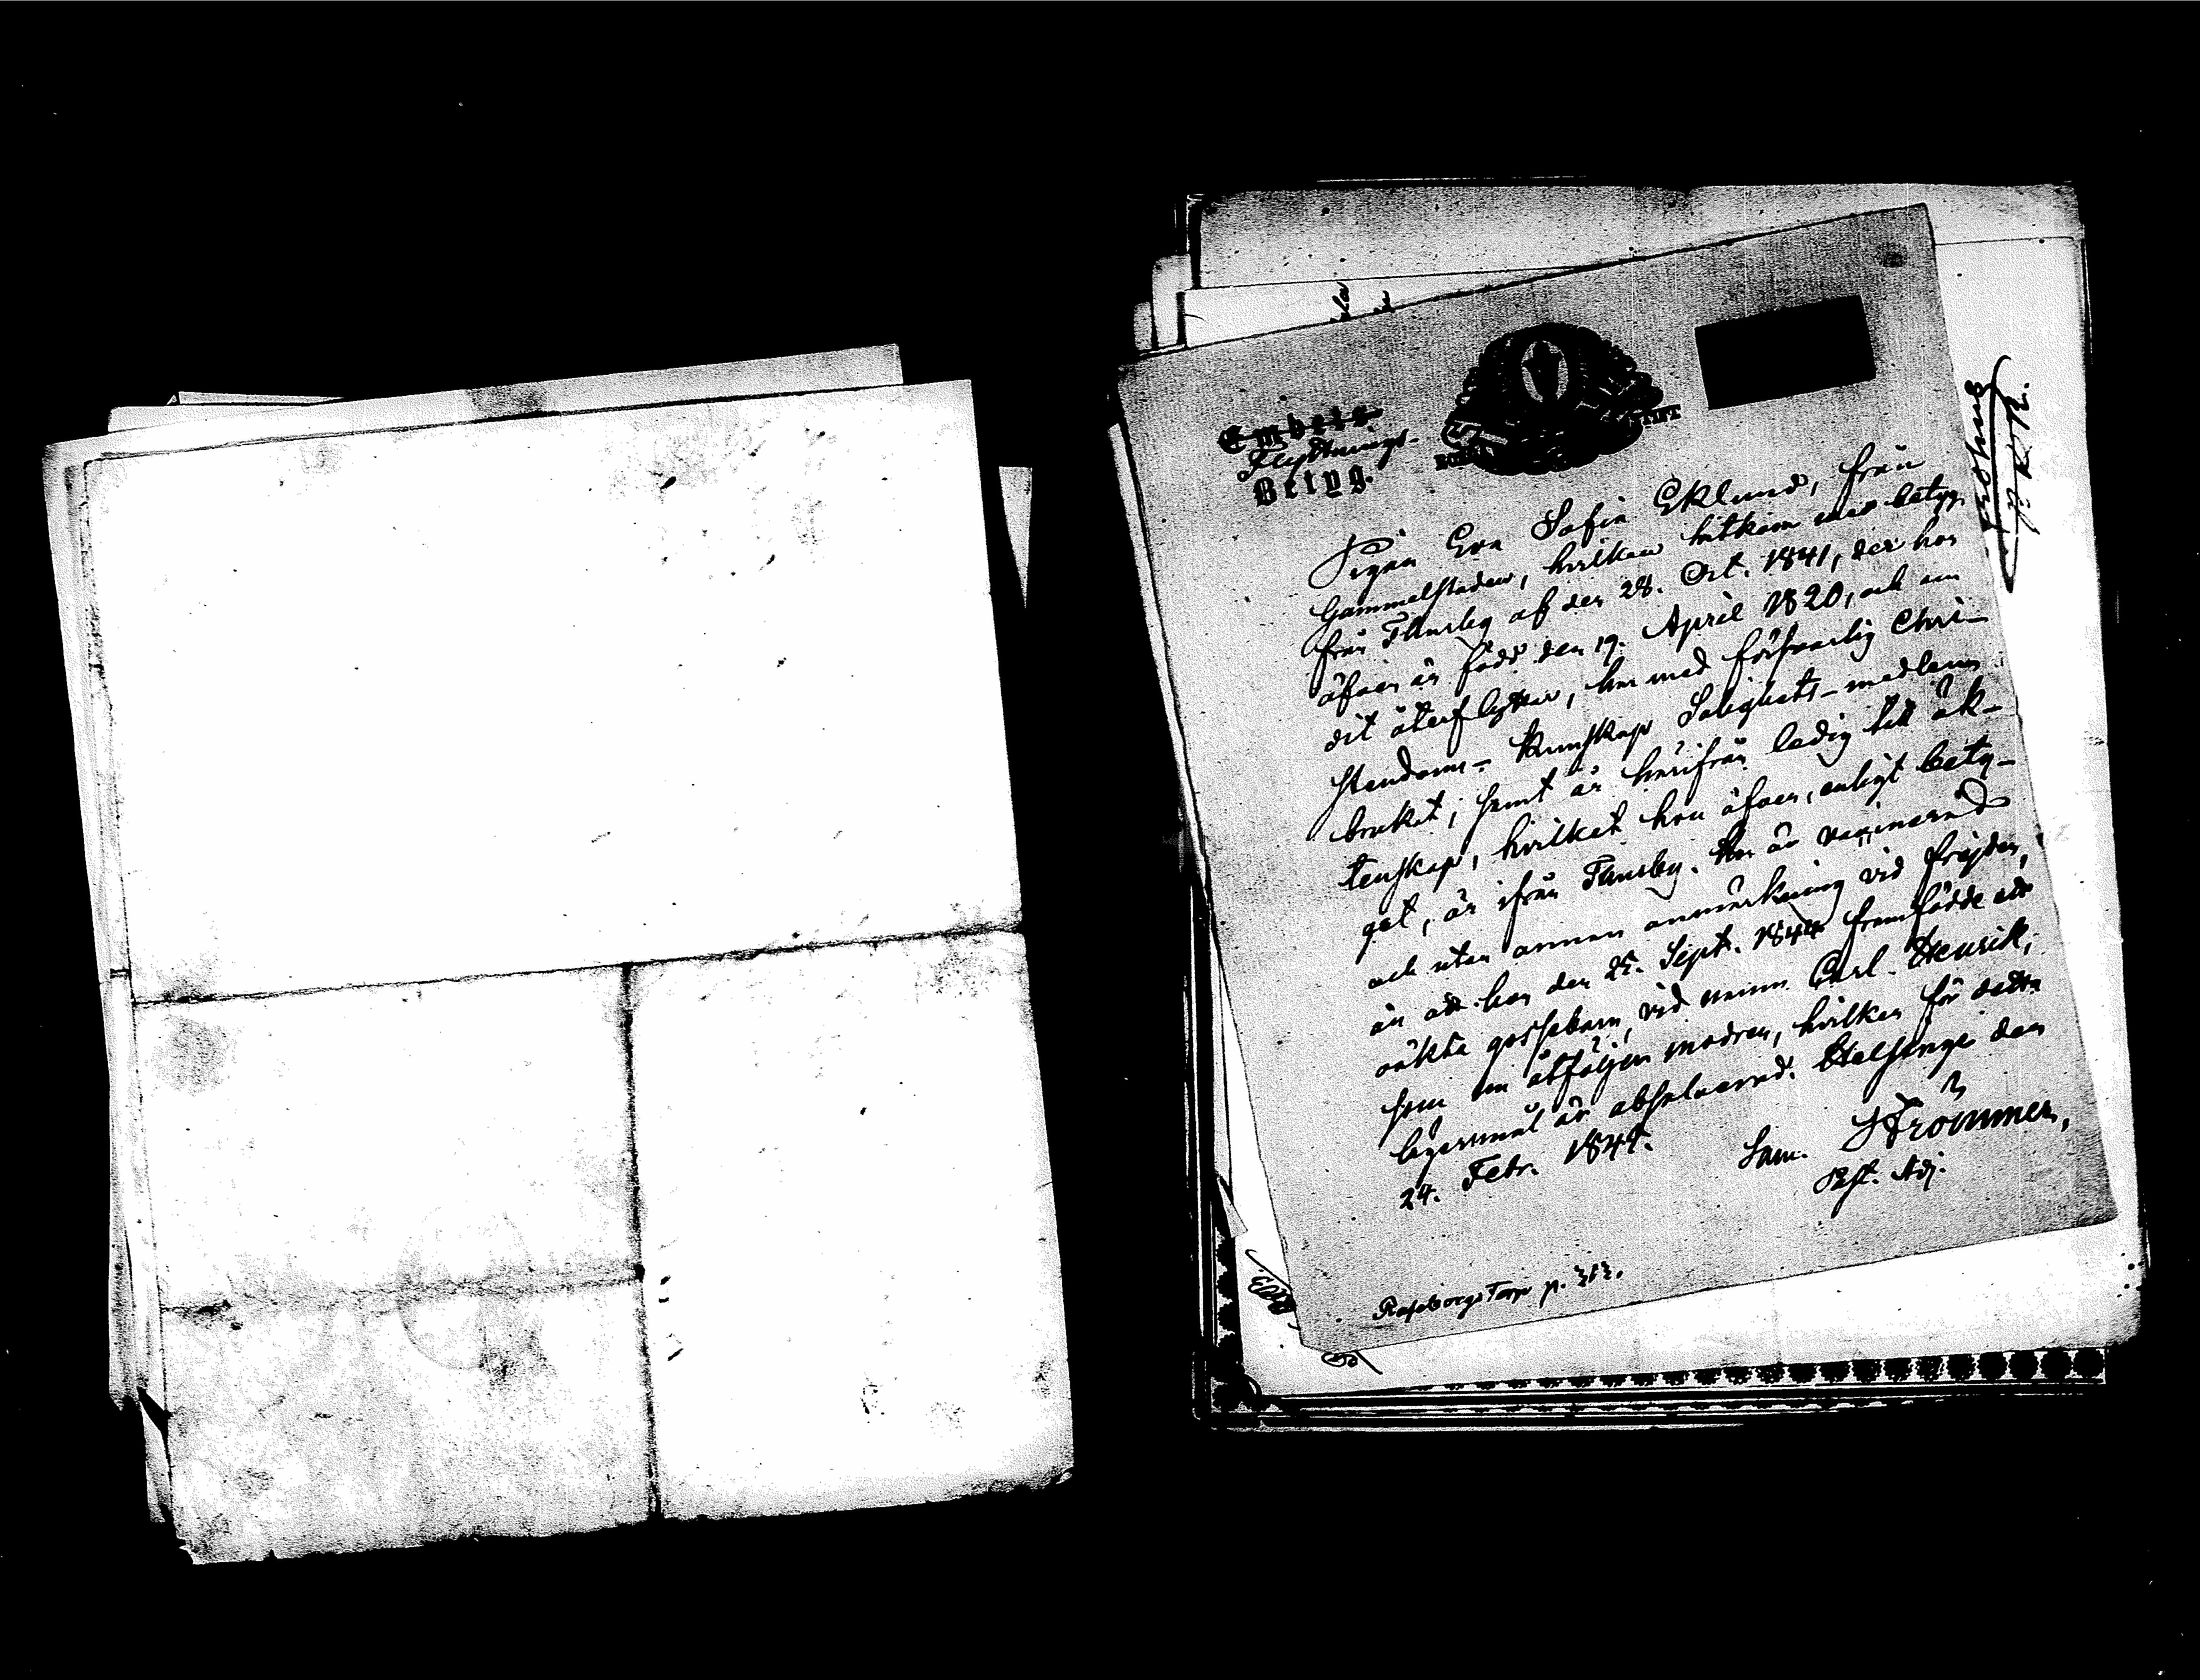 Embets-
Flyttnings-
Betyg.
Pigan Eva Sofia Eklund, från
Gammelstaden, hvilken hitkom med betyg
från Thusby af den 28. Oct. 1841, der hon
äfven är född den 19. April 1820, och nu
dit återflyttar, har med försvarlig Chri-
stendoms-kunskap Salighets-medlem
brukat, samt är härifrån ledig till äk-
tenskap, hvilket hon äfven, enligt bety-
get, är ifrån Thusby. Hon är vaccinerad
och utan annan anmärkning vid frejden,
än att hon den 25. Sept. 1844 framfödde ett
oäkta gossebarn, vid namn Carl Henrik,
som nu åtföljer modren, hvilken för detta
lägersmål är absolverad. Helsinge den
24. Febr. 1849.
Sam. Strömmer,
Past. Adj.
p. 313.